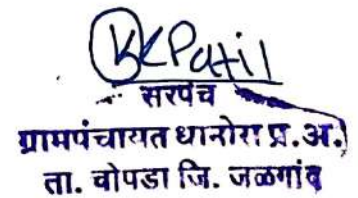 KCPatil
सरपंच
ग्रामपंचायत धानोरा प्र.अ.
ता. चोपडा जि. जळगांव